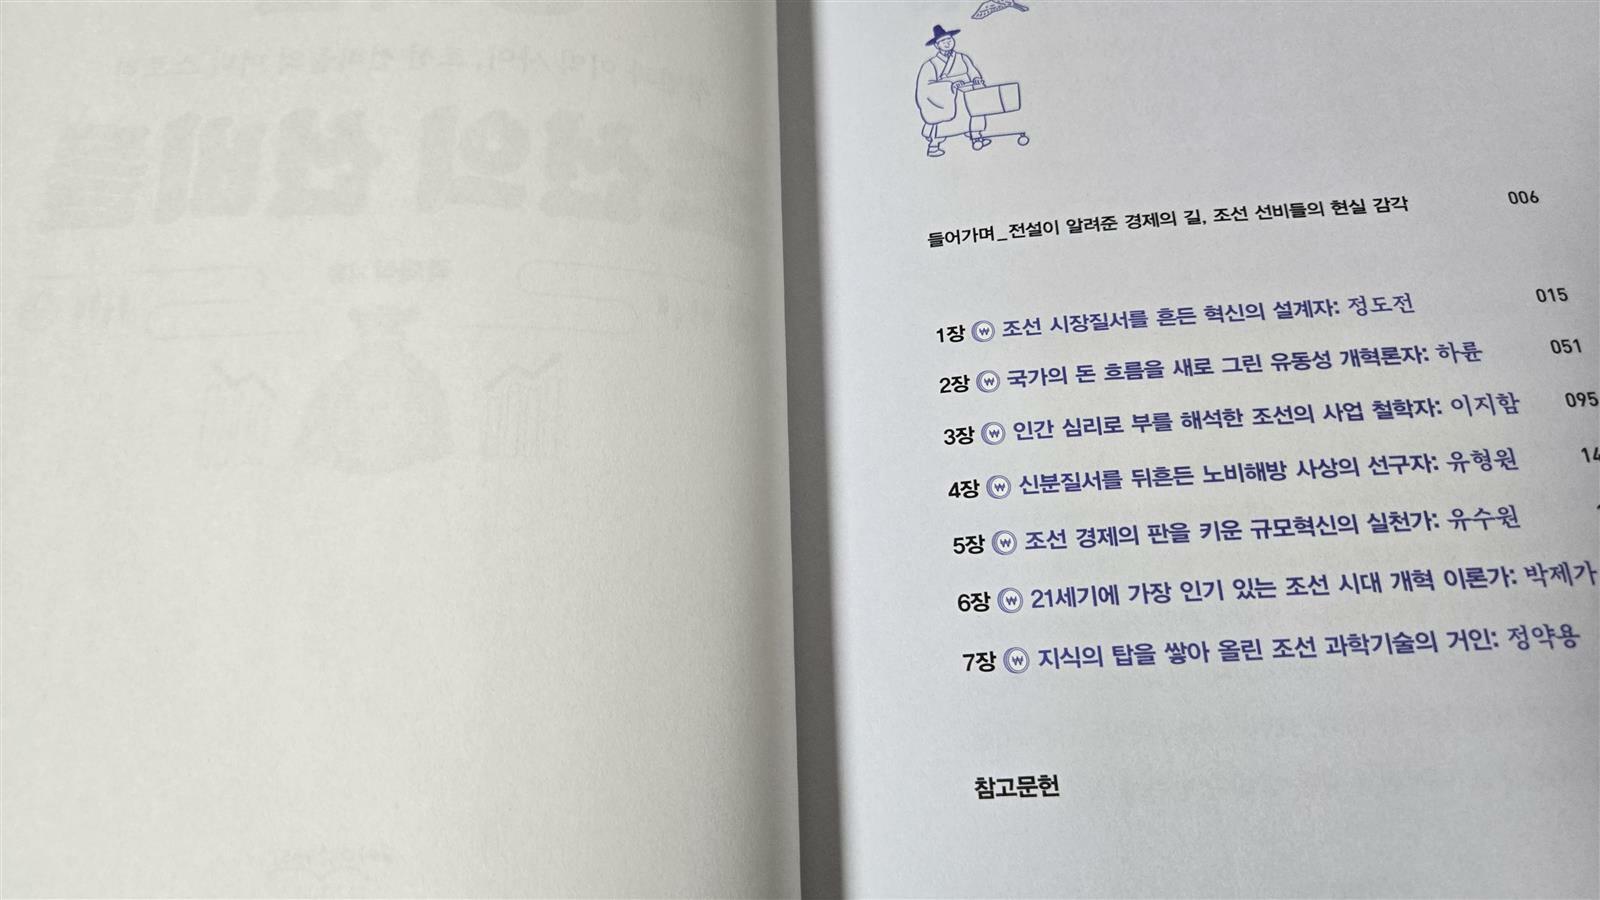 들어가며_전설이 알려준 경제의 길, 조선 선비들의 현실 감각 006
1장 조선 시장질서를 흔든 혁신의 설계자: 정도전 015
2장 국가의 돈 흐름을 새로 그린 유동성 개혁론자: 하륜 051
3장 인간 심리로 부를 해석한 조선의 사업 철학자: 이지함 095
4장 신분질서를 뒤흔든 노비해방 사상의 선구자: 유형원
5장 조선 경제의 판을 키운 규모혁신의 실천가: 유수원
6장 21세기에 가장 인기 있는 조선 시대 개혁 이론가: 박제가
7장 지식의 탑을 쌓아 올린 조선 과학기술의 거인: 정약용
참고문헌